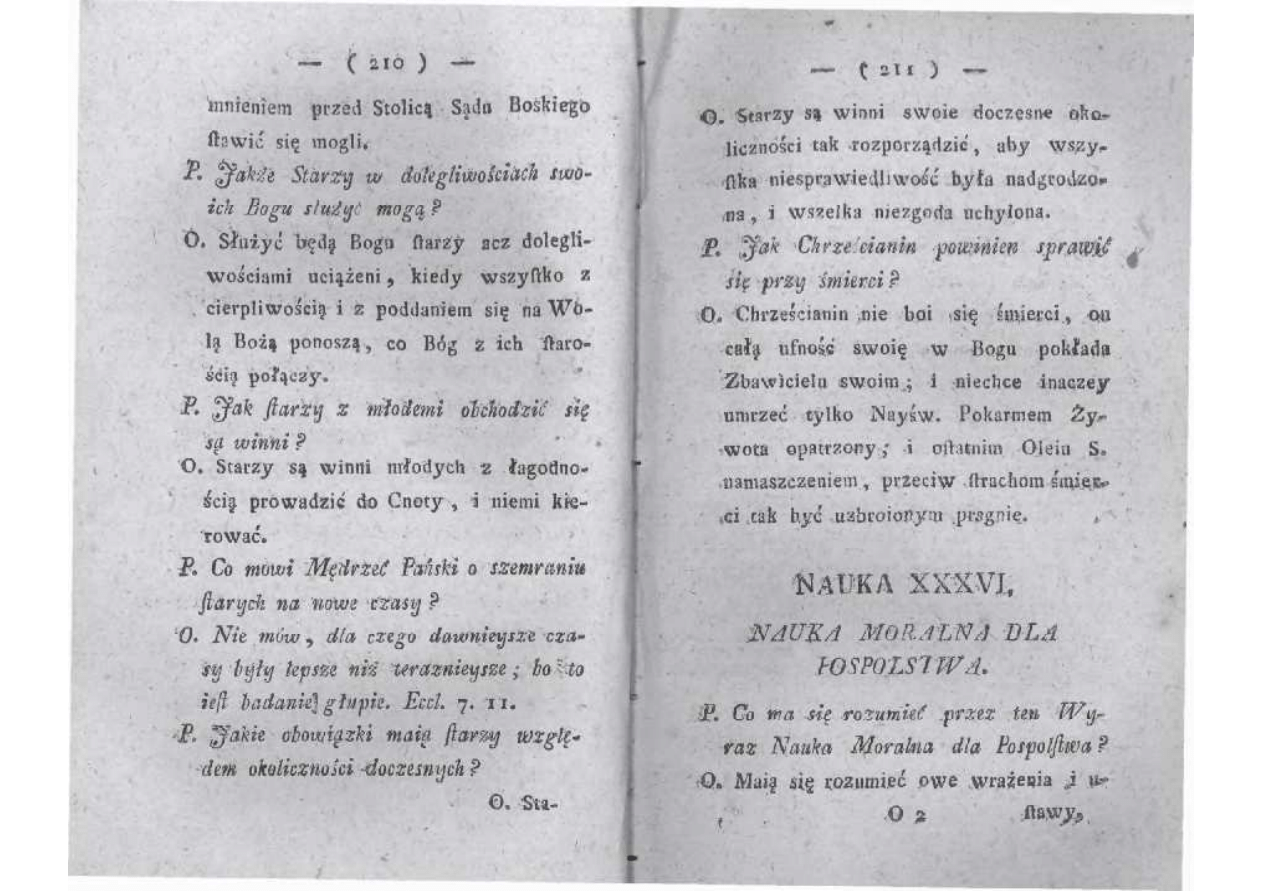 — ( 210 ) —
mnieniem przed Stolicą Sądu Boskiego
ſtawić się mogli.
P. Jakże Starzy w dolegliwościach swo-
ich Bogu służyć mogą?
O. Służyć będą Bogu ſtarzy acz dolegli-
wościami uciążeni, kiedy wszyſtko z
cierpliwością i z poddaniem się na Wo-
lą Bożą ponoszą, co Bóg z ich ſtaro-
ścią połączy.
P. Jak ſtarzy z młodemi obchodzić się
są winni?
O. Starzy są winni młodych z łagodno-
ścią prowadzić do Cnoty, i niemi kie-
rować.
P. Co mówi Mędrzeć Pański o szemraniu
ſtarych na nowe czasy?
O. Nie mów, dla czego dawnieysze cza-
sy były lepsze niż teraznieysze; bo to
ieſt badanie głupie. Eccl. 7. 11.
P. Jakie obowiązki maią ſtarzy wzglę-
dem okoliczności doczesnych?
O. Sta-
— ( 211 ) —
O. Starzy są winni swoie doczesne oko-
liczności tak rozporządzić, aby wszy-
ſtka niesprawiedliwość była nadgrodzo-
na, i wszelka niezgoda uchylona.
P. Jak Chrześcianin powinien sprawić
się przy śmierci?
O. Chrześcianin nie boi się śmierci, on
całą ufność swoię w Bogu pokłada
Zbawicielu swoim; i niechce inaczey
umrzeć tylko Nayśw. Pokarmem Ży-
wota opatrzony; i oſtatnim Oleiu S.
namaszczeniem, przeciw ſtrachom śmier-
ci tak być uzbroionym pragnie.
NAUKA XXXVI.
NAUKA MORALNA DLA
POSPOLSTWA.
P. Co ma się rozumieć przez ten Wy-
raz Nauka Moralna dla Pospolſtwa?
O. Maią się rozumieć owe wrażenia i u-
O 2 ſtawy,